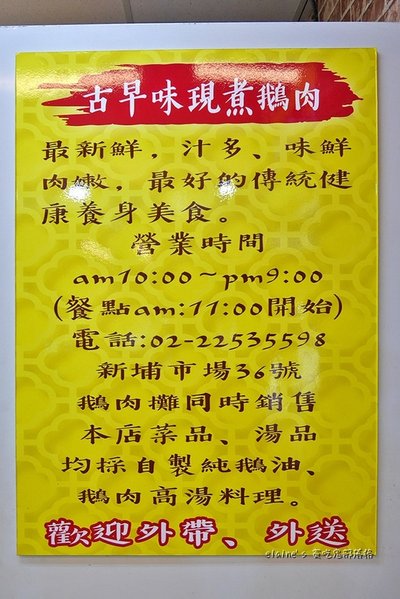 古早味現煮鵝肉
最新鮮，汁多、味鮮
肉嫩，最好的傳統健
康養身美食。
營業時間
am10:00～pm9:00
(餐點am:11:00開始)
電話:02-22535598
新埔市場36號
鵝肉攤同時銷售
本店菜品、湯品
均採自製純鵝油、
鵝肉高湯料理。
歡迎外帶、外送
elaine's